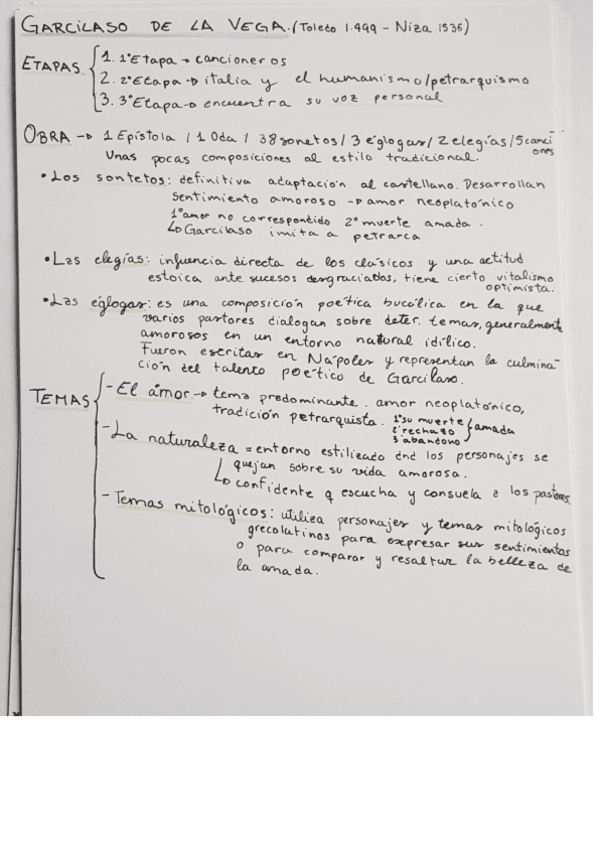 GARCILASO DE LA VEGA. (Toledo 1.499 - Niza 1536)
ETAPAS
1. 1ª Etapa → cancioneros
2. 2ª Etapa → italia y el humanismo/petrarquismo
3. 3ª Etapa → encuentra su voz personal
OBRA → 1 Epístola / 1 Oda / 38 sonetos / 3 églogas / 2 elegías / 5 canciones
Unas pocas composiciones al estilo tradicional.
• Los sontetos: definitiva adaptación al castellano. Desarrollan
sentimiento amoroso → amor neoplatónico
1º amor no correspondido 2º muerte amada.
↳ Garcilaso imita a petrarca
• Las elegías: infuencia directa de los clásicos y una actitud
estoica ante sucesos desgraciados, tiene cierto vitalismo
optimista.
• Las églogas: es una composición poética bucólica en la que
varios pastores dialogan sobre deter. temas, generalmente
amorosos en un entorno natural idílico.
Fueron escritas en Nápoles y representan la culmina-
ción del talento poético de Garcilaso.
TEMAS
- El amor → tema predominante. amor neoplatónico,
tradición petrarquista. 1º su muerte
2º rechazo
3º abandono
amada
- La naturaleza = entorno estilizado dnd los personajes se
quejan sobre su vida amorosa.
↳ confidente q escucha y consuela a los pastores.
- Temas mitológicos: utiliza personajes y temas mitológicos
grecolatinos para expresar sus sentimientos
o para comparar y resaltar la belleza de
la amada.